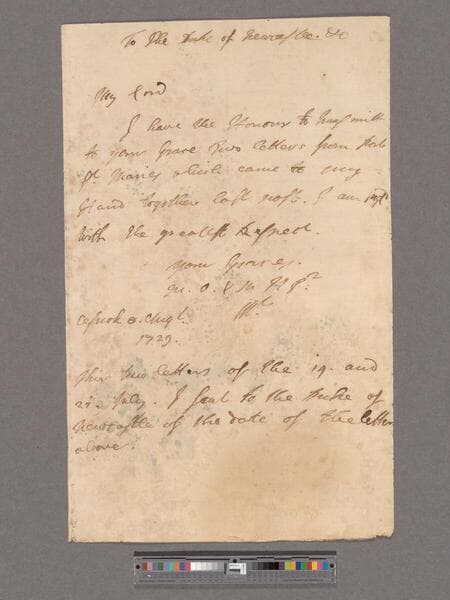 To the Duke of Newcastle. &c
My Lord
I have the Honour to transmitt
to your Grace two letters from Port
St. Maries which came to my
Hand together last post. I am
With the greatest Respect.
your Graces.
m. o. & m H
8. Augt.
1729.
This two letters of the 19. and
July. I sent to the Duke of
Newcastle of the date of the letter
above.